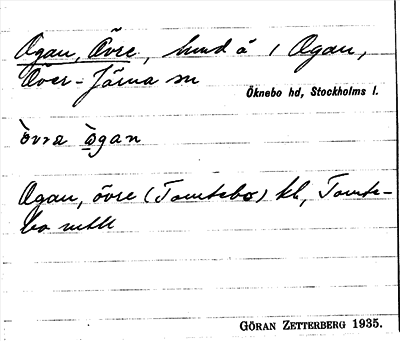 Ogan, Övre, hmd å 1 Ogan,
Över-Järna sn
Öknebo hd, Stockholms l.
òvrɑ ògan
Ogan, övre (Tomtebo) kl, Tomte-
bo
GÖRAN ZETTERBERG 1935.